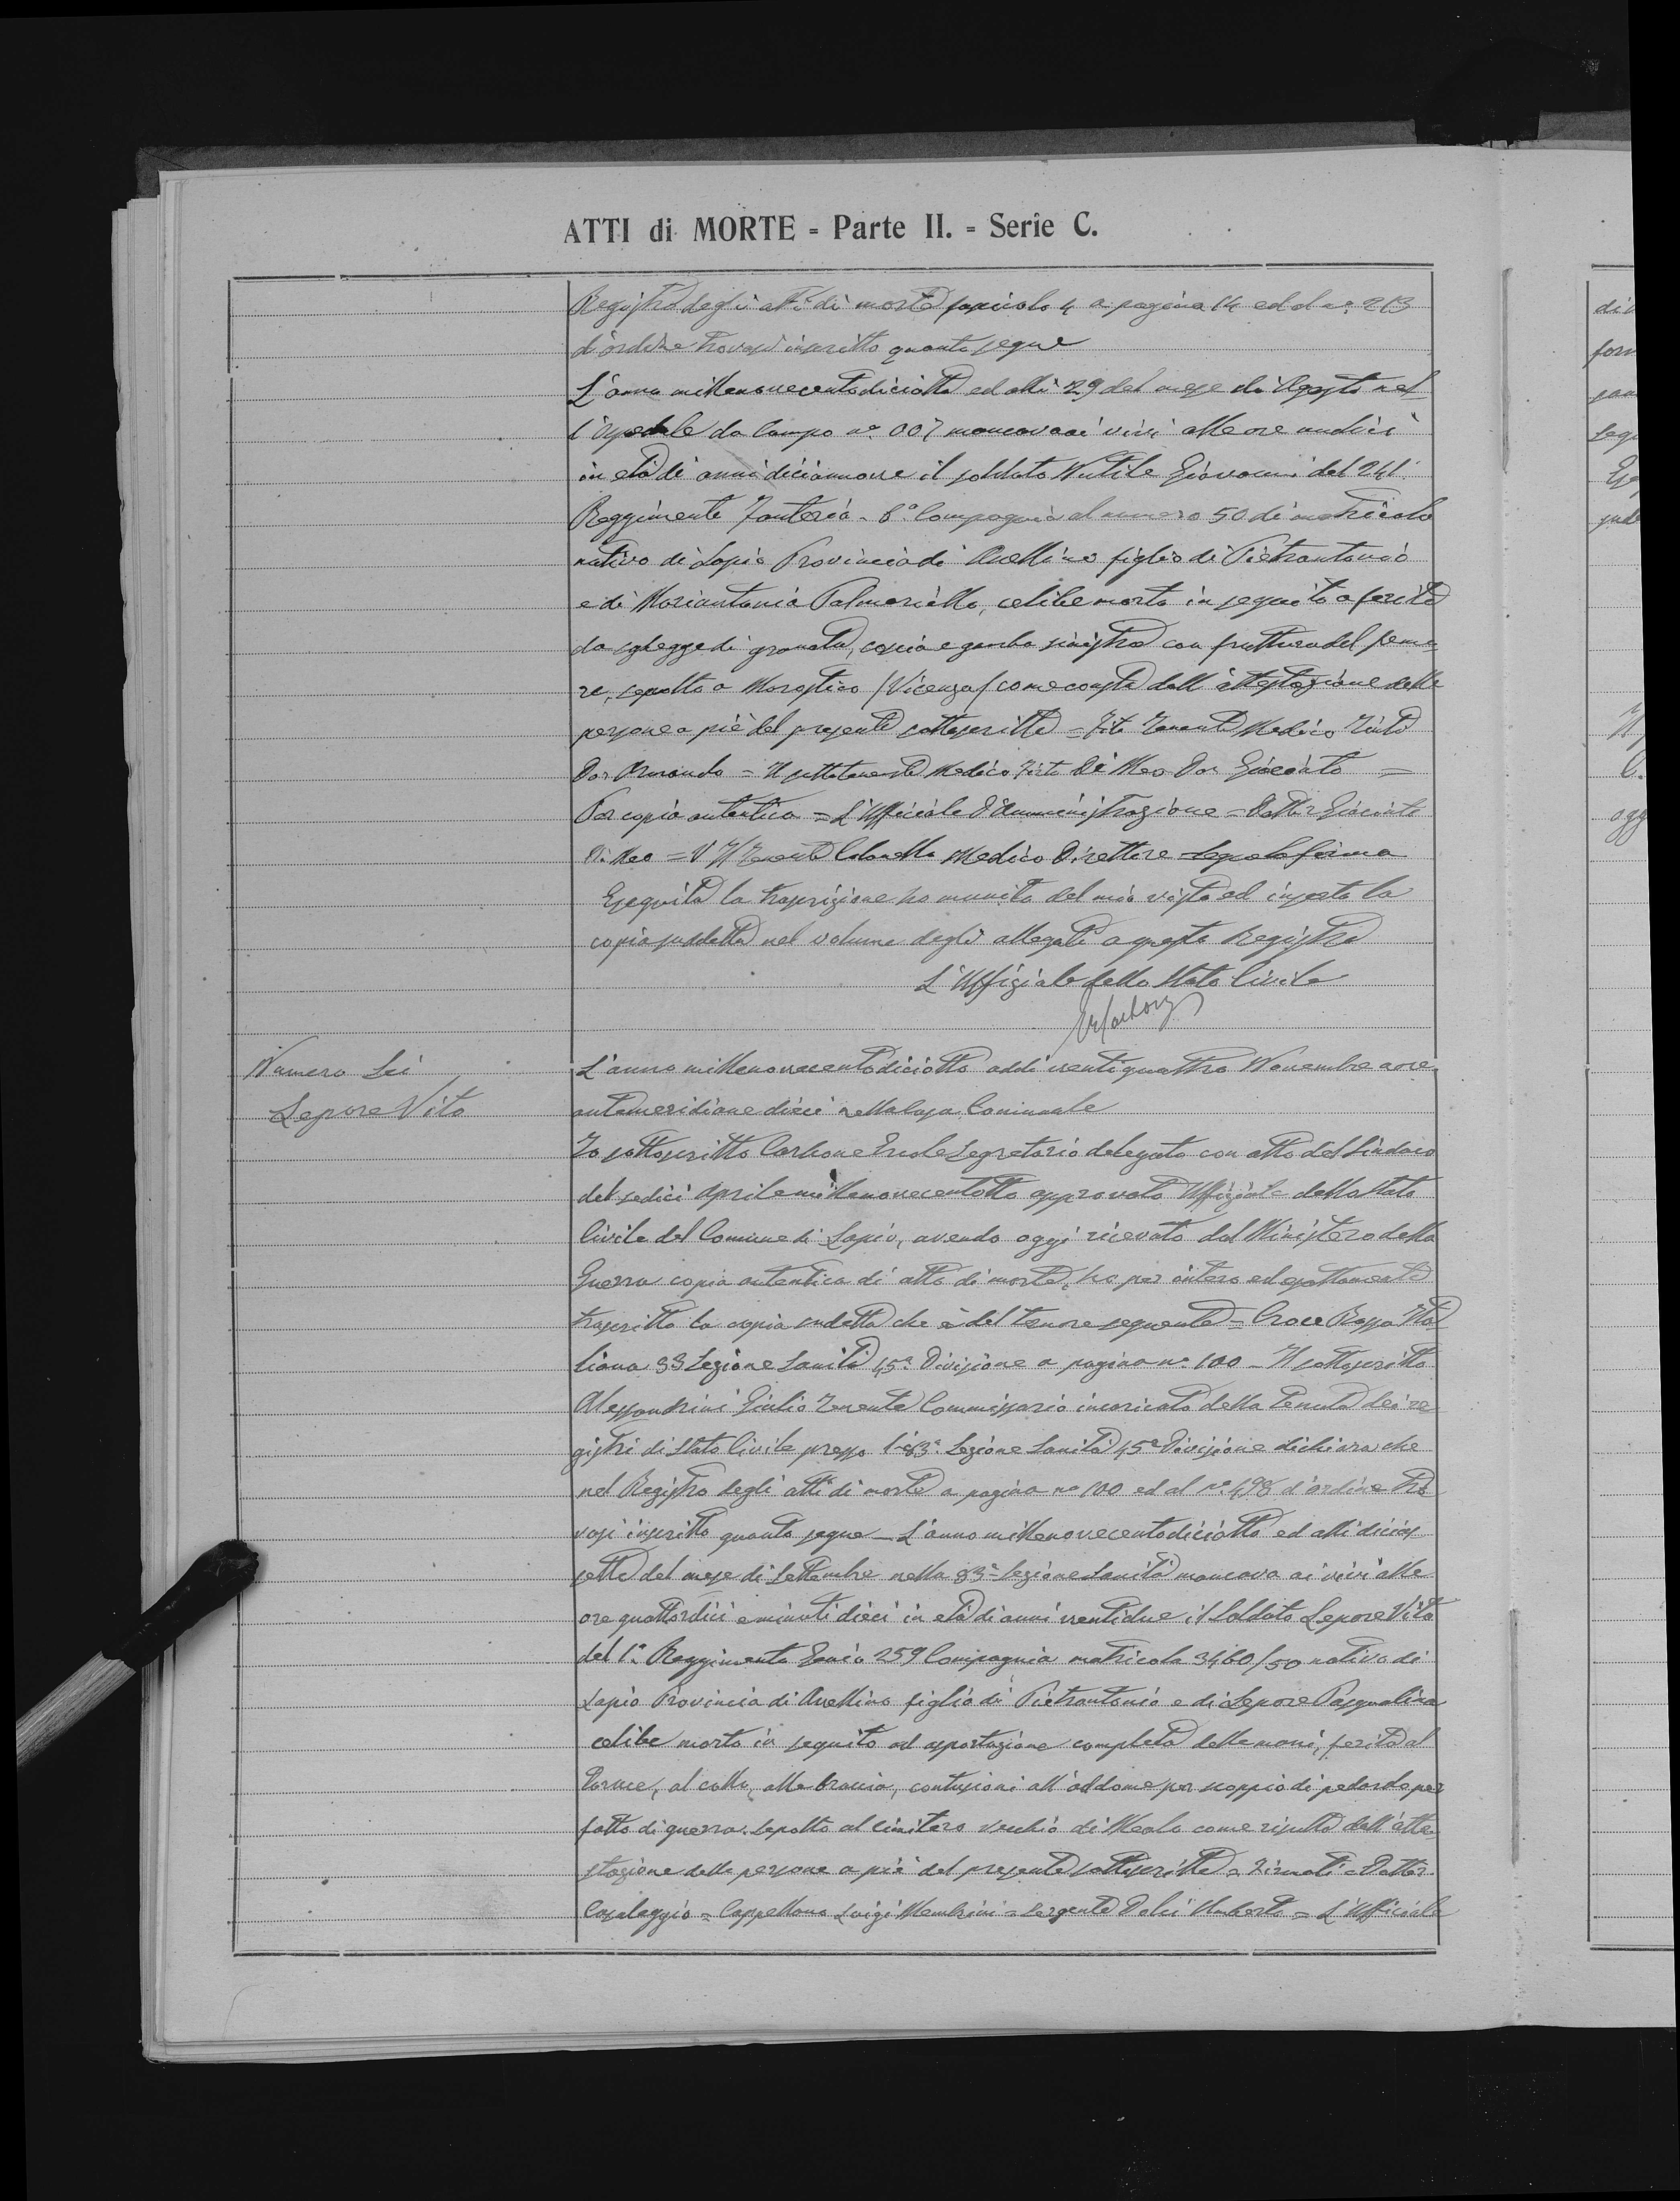 ATTI di MORTE = Parte II. = Serie C.
Registro degli atti di morte fascicolo 4 a pagina 14 ed al n° 213
d'ordine trovasi inscritto quanto segue
L'anno millenovecentodiciotto ed alli 29 del mese di Agosto nel
l'ospedale da Campo n° 007 mancava ai vivi alle ore undici
in età di anni diciannove il soldato Nutile Giovanni del 241°
Reggimento Fanteria - 8ª Compagnia al numero 50 di matricola
nativo di Lapio Provincia di Avellino figlio di Pietrantonio
e di Mariantonia Palmariello, celibe morto in seguito a ferite
da schegge di granata, coscia e gamba sinistra con frattura del femo
re, sepolto a Marostica (Vicenza) come consta dall'attestazione delle
persone a piè del presente sottoscritte = Fto Tenente Medico Tinto
Dor Armando = Il sottotenente Medico Firto Di Meo Dor Giacinto =
Per copia autentica = L'Ufficiale d'Amministrazione = Dottor Giacinto
Di Meo = V° Il Tenente Colonello Medico Direttore Segue la firma
Eseguita la trascrizione ho munito del mio visto ed inserto la
copia suddetta nel volume degli allegati a questo Registro
L'Uffiziale dello Stato Civile
Numero Sei
Lepore Vito
L'anno millenovecentodiciotto addì ventiquattro Novembre a ore
antimeridiane dieci nella Casa Comunale
Io sottoscritto Carbone Ercole Segretario delegato con atto del Sindaco
del sedici Aprile millenovecentotto approvato Uffiziale dello Stato
Civile del Comune di Lapio, avendo oggi ricevuto dal Ministero della
Guerra copia autentica di atto di morte, ho per intero ed esattamente
trascritto la copia sudetta che è del tenore seguente = Croce Rossa Ita
liana 83 Sezione Sanità 45ª Divisione a pagina n° 100 - Il sottoscritto
Alessandrini Giulio Tenente Commissario incaricato della tenuta dei re
gistri di Stato Civile presso l'83ª Sezione Sanità 45ª Divisione dichiara che
nel Registro degli atti di morte a pagina n° 100 ed al n° 498 d'ordine tro
vasi inscritto quanto segue - L'anno millenovecentodiciotto ed alli dicias
sette del mese di Settembre nella 83ª Sezione Sanità mancava ai vivi alle
ore quattordici e minuti dieci in età di anni ventidue il Soldato Lepore Vito
del 1° Reggimento Genio 259 Compagnia matricola 3460/50 nativo di
Lapio Provincia di Avellino figlio di Pietrantonio e di Lepore Pasqualina
celibe morto in seguito ad asportazione completa delle mani, ferite al
torace, al collo, alle braccia, contusioni all'addome per scoppio di petardo per
fatto di guerra. Sepolto al Cimitero vecchio di Meolo come risulta dall'atte
stazione delle persone a piè del presente sottoscritte = Firmati = Dottor
Casaleggio = Cappellano Luigi Membrini = Sergente Dolci Umberto = L'Ufficiale